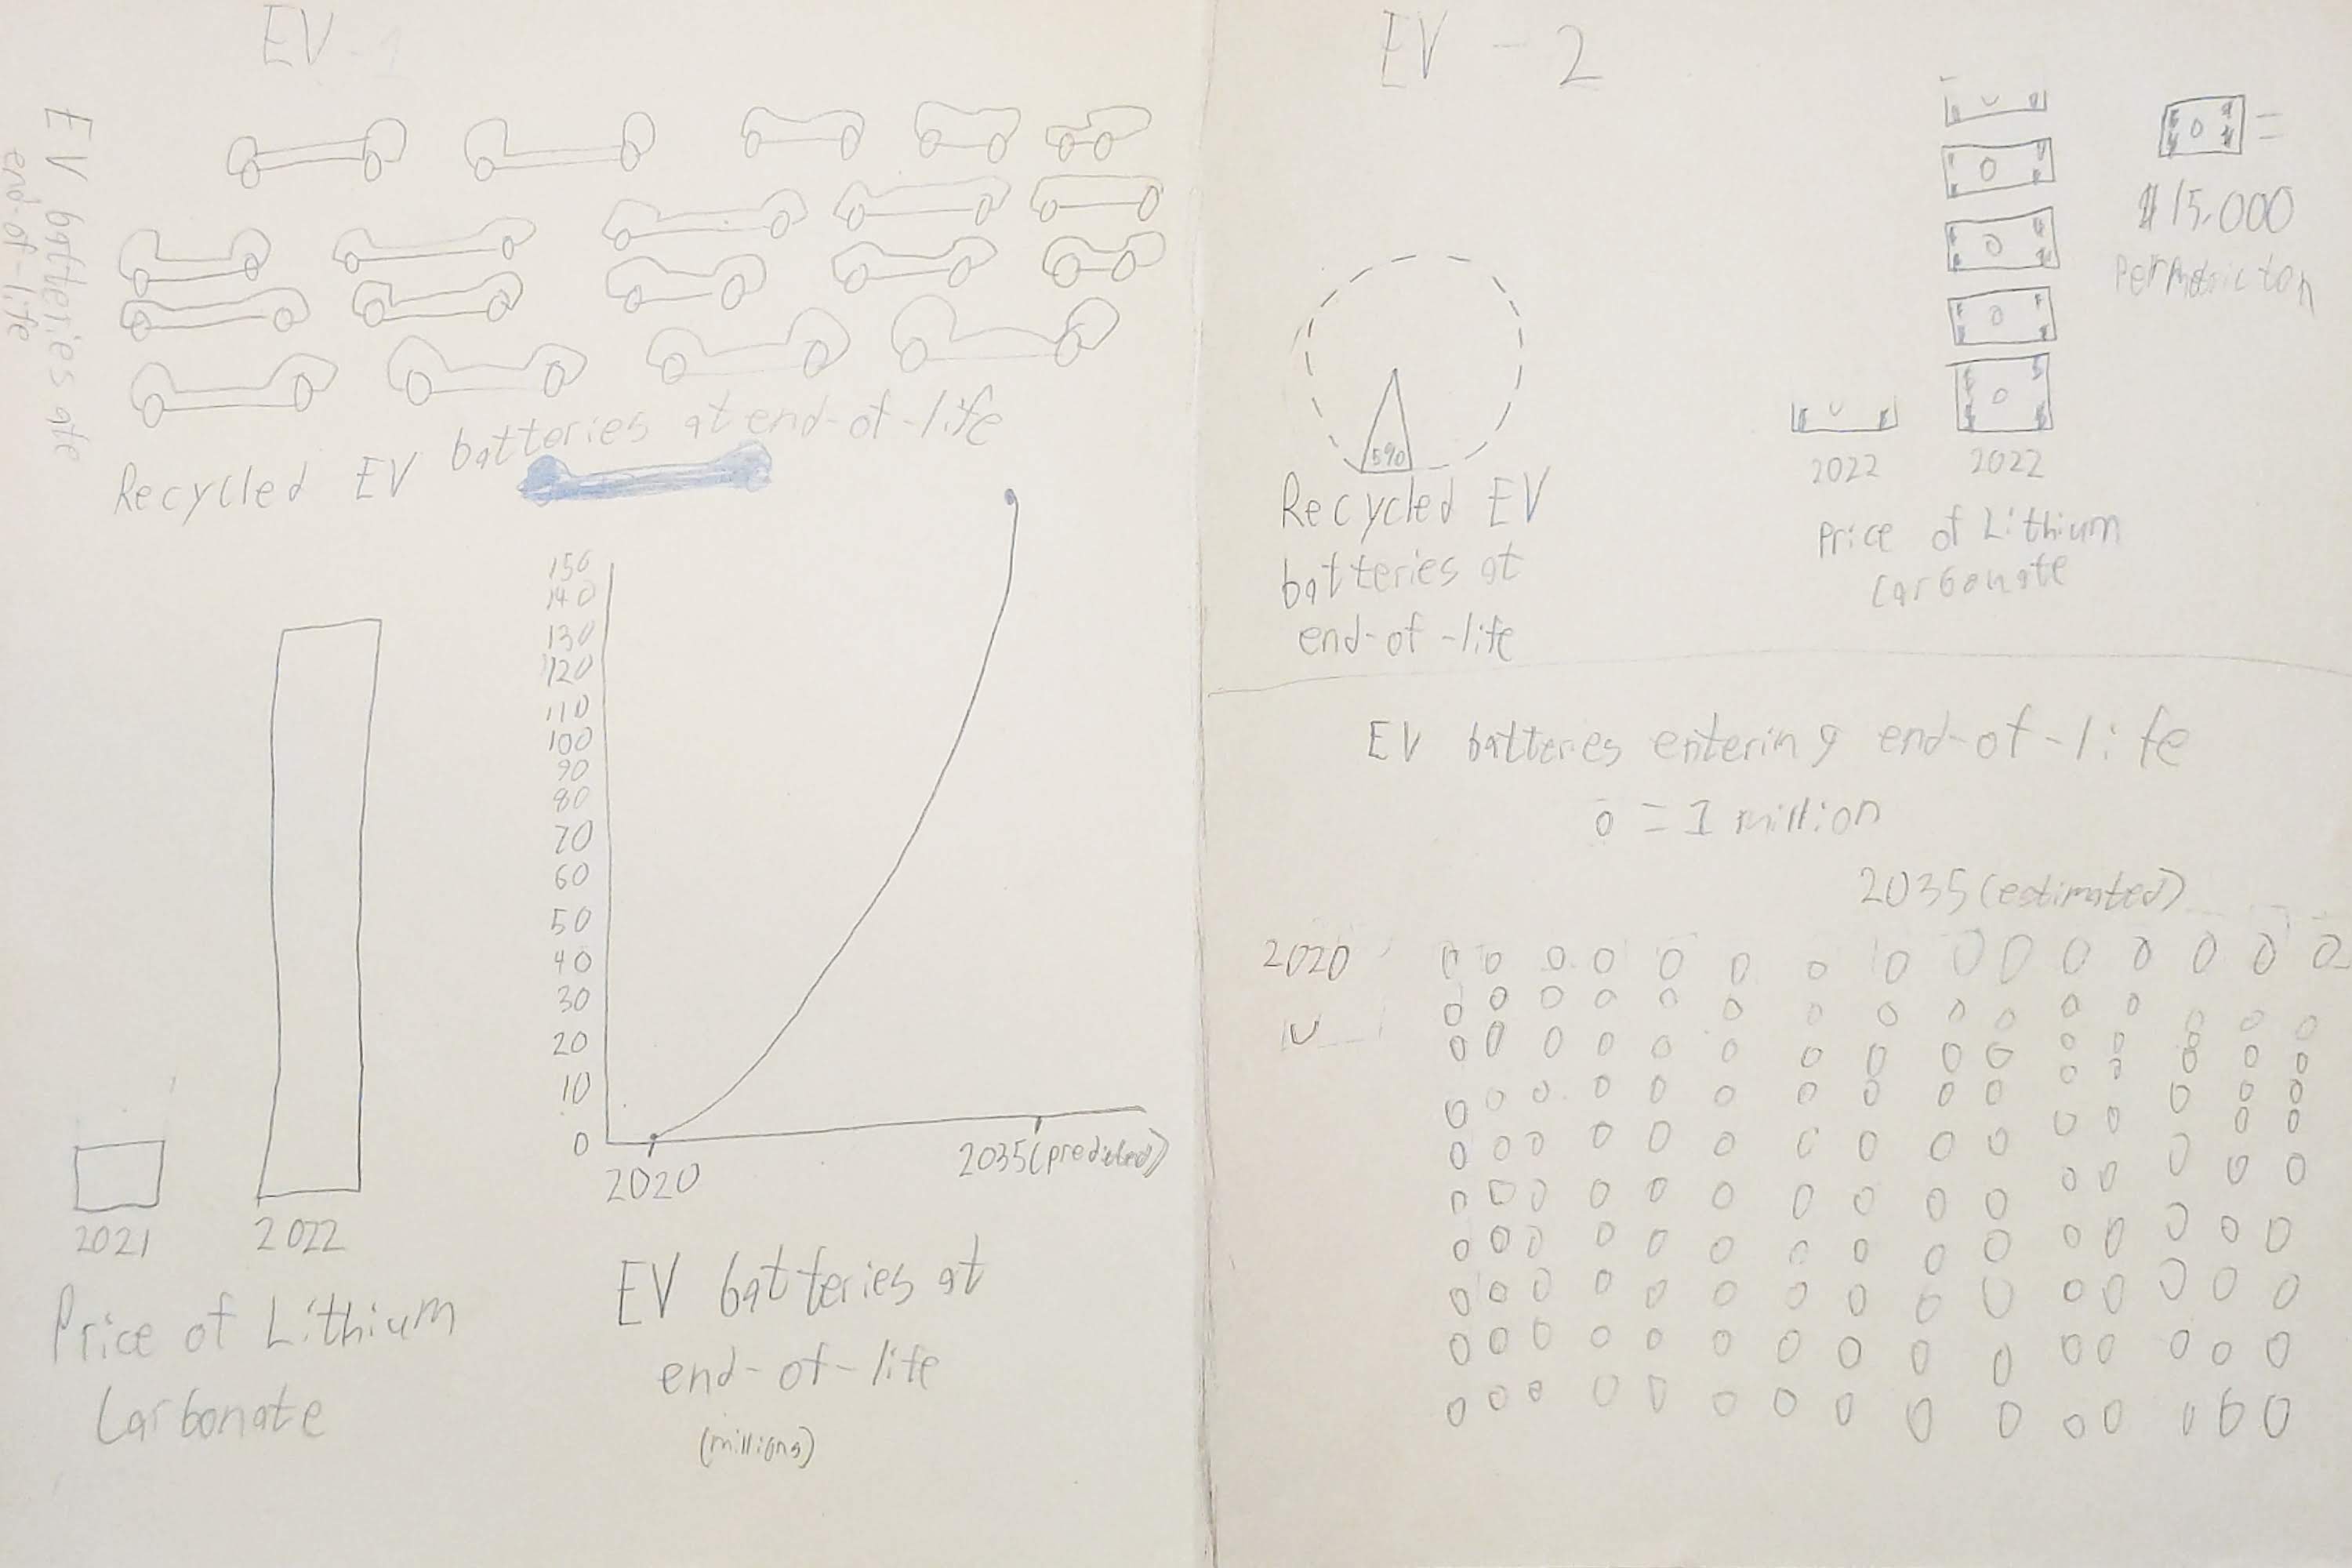 EV - 1
EV batteries ate
end-of-life
Recycled EV batteries at end-of-life
150
140
130
120
110
100
90
80
70
60
50
40
30
20
10
0
2020
2035(predicted)
EV batteries at
end-of-life
(millions)
2021
2022
Price of Lithium
Carbonate
EV - 2
5%
Recycled EV
batteries at
end-of-life
=
$15,000
Per Metric ton
2022
2022
Price of Lithium
Carbonate
EV batteries entering end-of-life
o = 1 million
2035(estimated)
2020